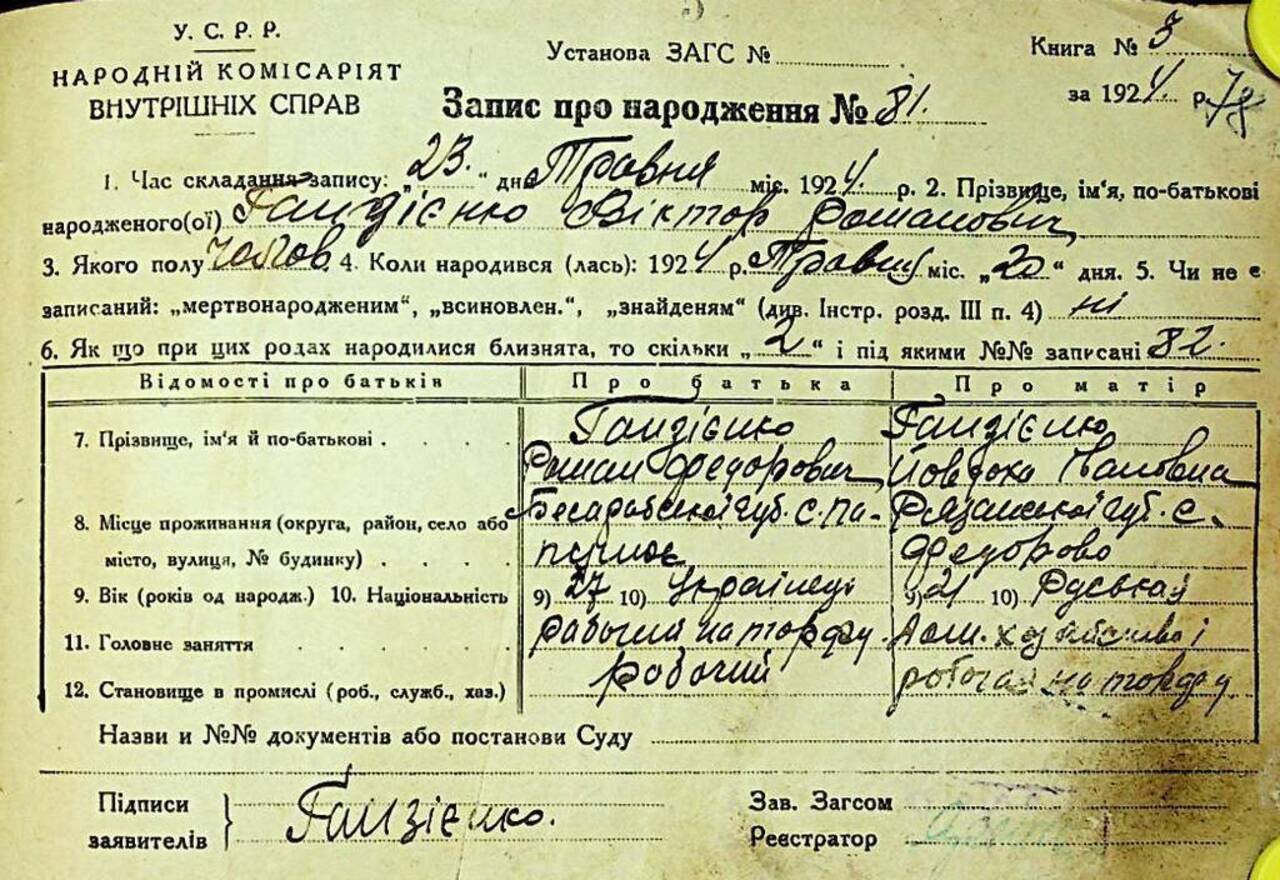 У. С. Р. Р.
НАРОДНІЙ КОМІСАРІЯТ
ВНУТРІШНІХ СПРАВ
Установа ЗАГС №
Книга № 3
за 1924 р.
Запис про народження № 81.
1. Час складання запису: „23.“ дня Травня міс. 1924. р. 2. Прізвище, ім'я, по-батькові
народженого(ої) Гандзієнко Віктор Романович
3. Якого полу чолов. 4. Коли народився (лась): 1924 р. Травня міс. „20“ дня. 5. Чи не є
записаний: „мертвонародженим“, „всиновлен.“, „знайденям“ (див. Інстр. розд. III п. 4) ні
6. Як що при цих родах народилися близнята, то скільки „2“ і під якими №№ записані 82.
Відомості про батьків Про батька Про матір
7. Прізвище, ім'я й по-батькові Гандзієнко Гандзієнко
Роман Федорович Йовдоха Івановна
8. Місце проживання (округа, район, село або Бесарабської губ. с. Рязанської губ. с.
місто, вулиця, № будинку) Федорово
9. Вік (років од народж.) 10. Національність 9) 27 10) Українець 9) 21 10) Руськая
11. Головне заняття рабочий на торфу. Дом. хозяйство і
12. Становище в промислі (роб., служб., хаз.) робочий робочая на торфу
Назви и №№ документів або постанови Суду
Підписи
заявителів
Гандзієнко.
Зав. Загсом
Реєстратор